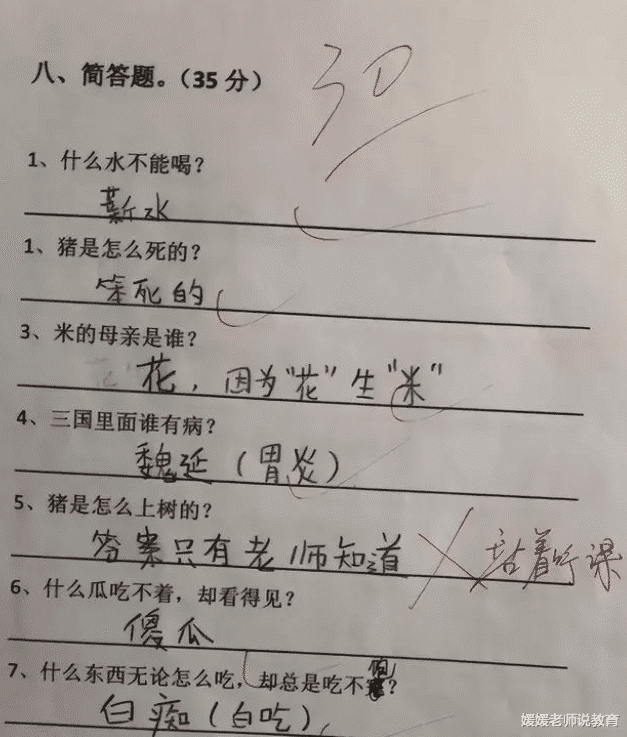 八、简答题。（35 分）
30
1、什么水不能喝？
薪水
1、猪是怎么死的？
笨死的
3、米的母亲是谁？
花，因为“花”生“米”
4、三国里面谁有病？
魏延（胃炎）
5、猪是怎么上树的？
答案只有老师知道
站着听课
6、什么瓜吃不着，却看得见？
傻瓜
7、什么东西无论怎么吃，却总是吃不饱？
白痴（白吃）
媛媛老师说教育